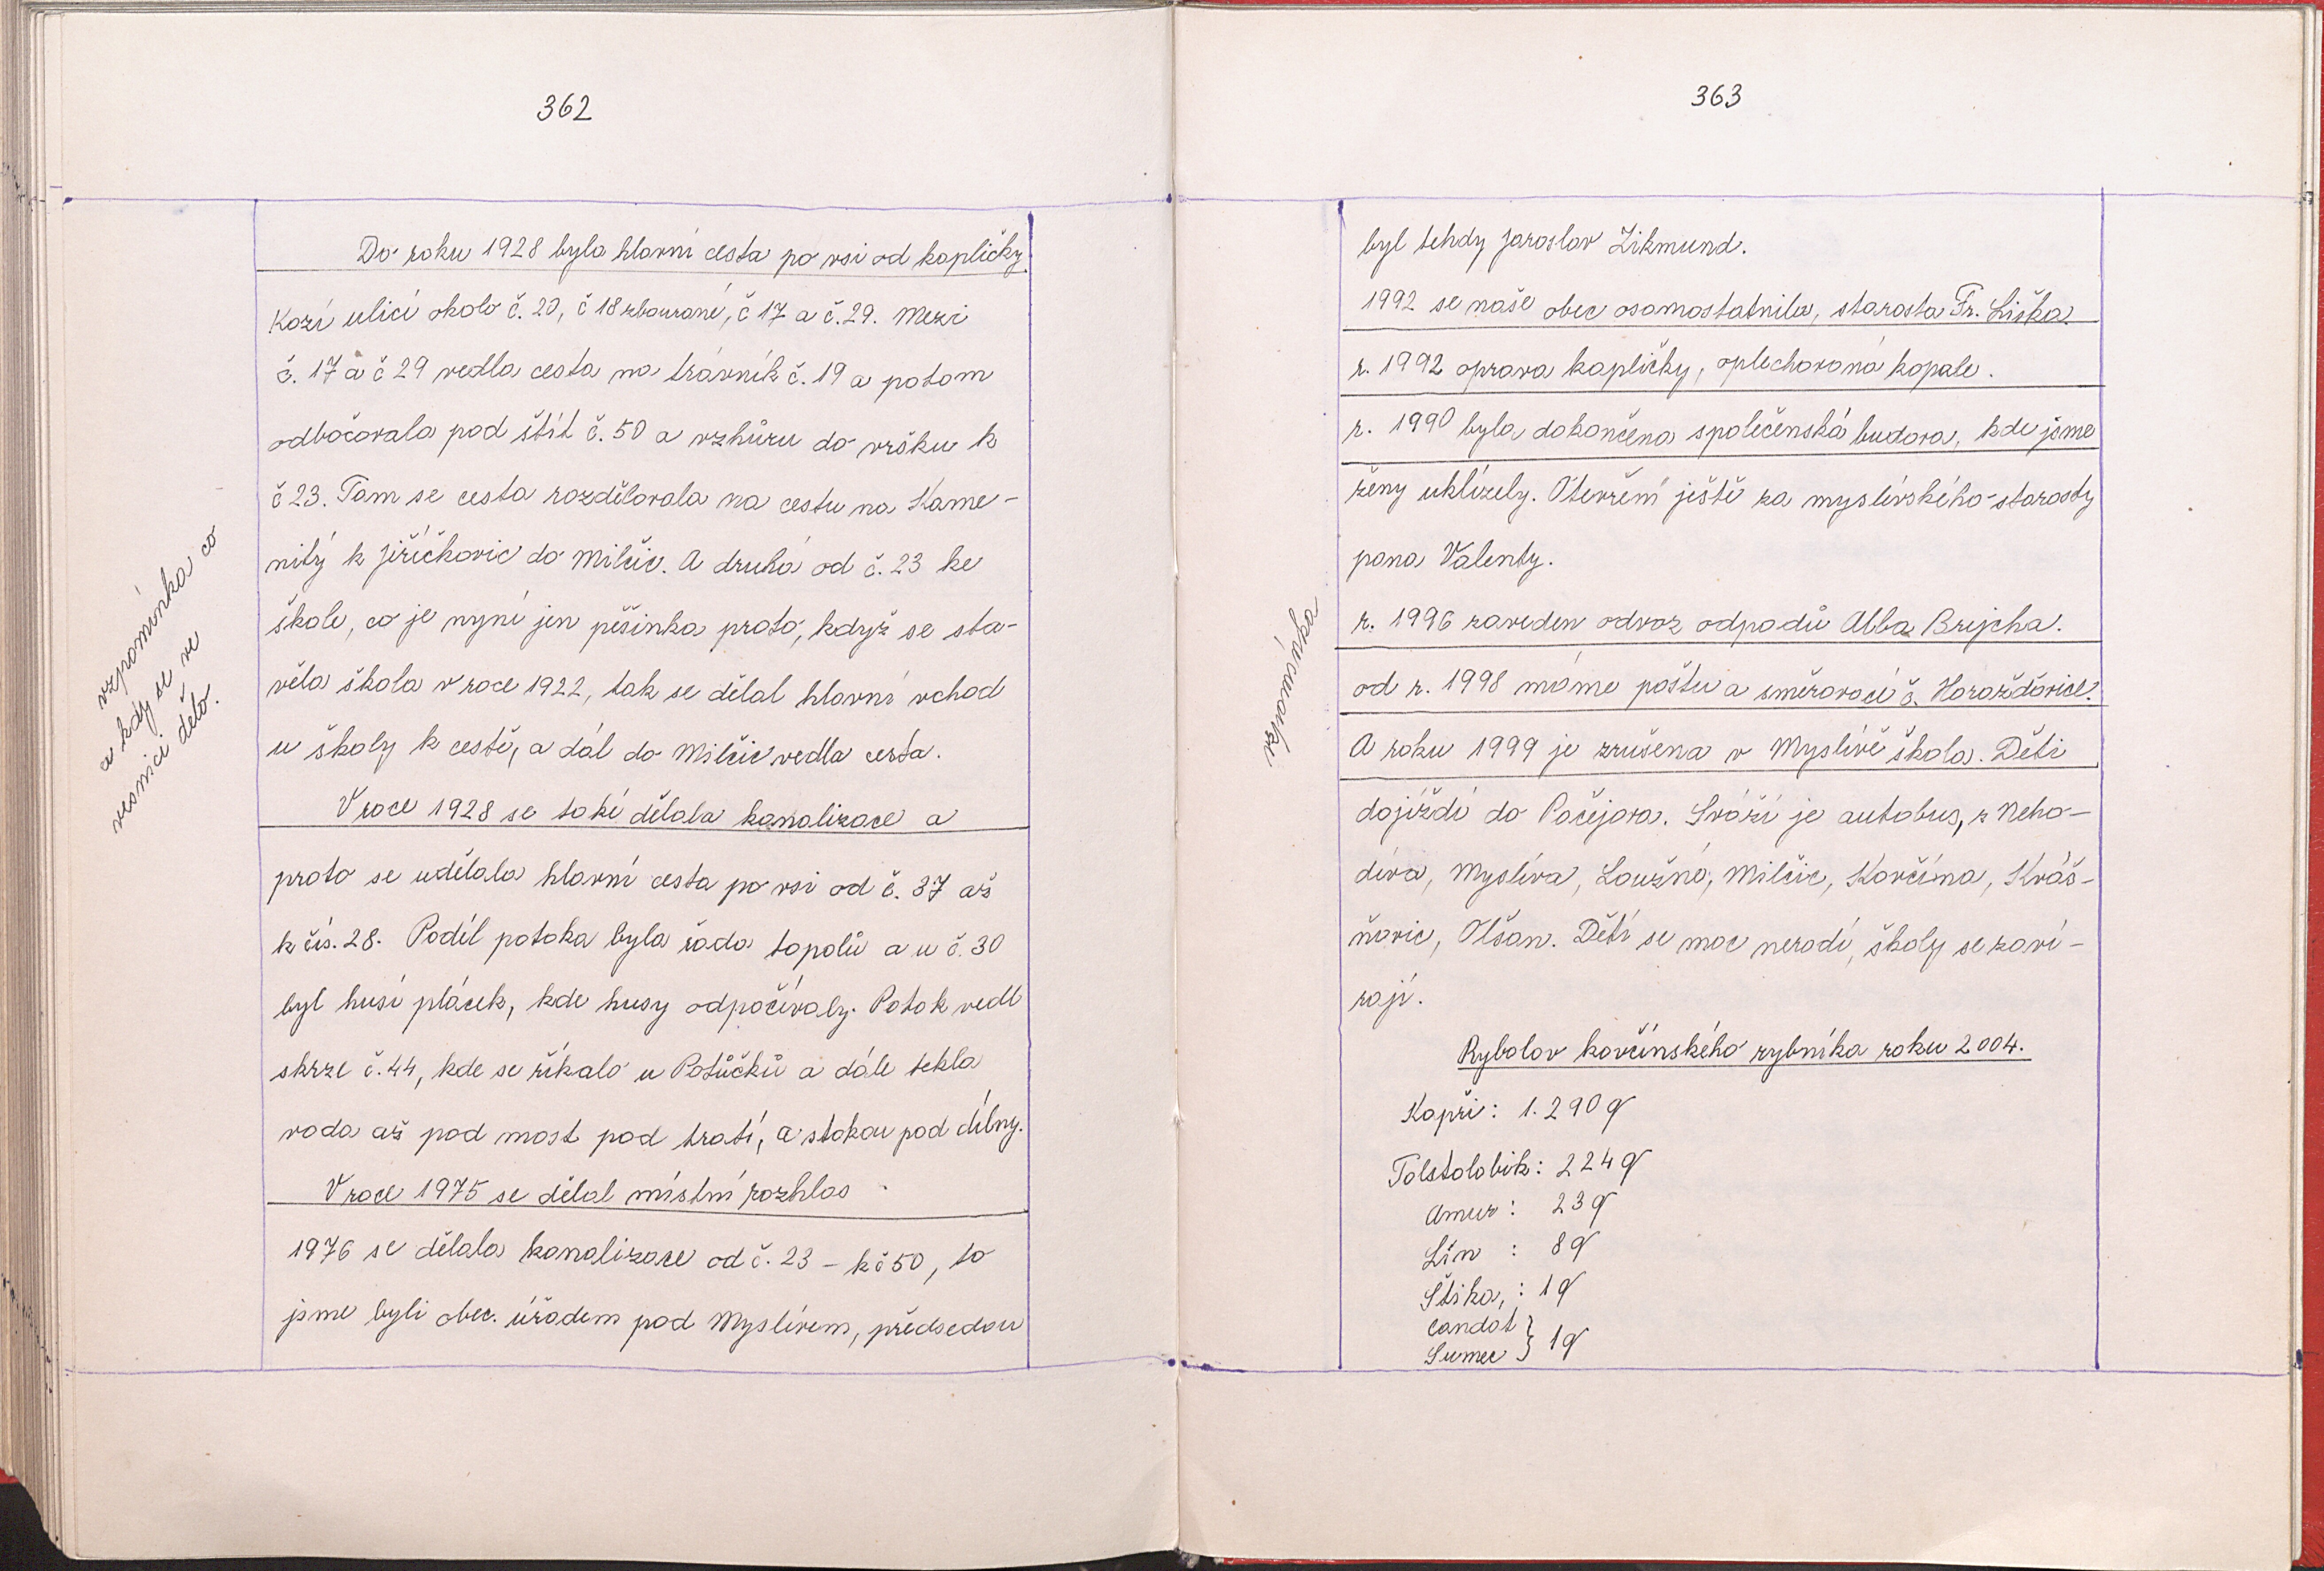 362
Do roku 1928 byla hlavní cesta po vsi od kapličky
Kozí ulicí okolo č. 20, č 18 zbourané, č 17 a č. 29. Mezi
č. 17 a č 29 vedla cesta na trávník č. 19 a potom
odbočovala pod štít č. 50 a vzhůru do vršku k
č 23. Tam se cesta rozdělovala na cestu na Kame-
nitý k Jiříčkovic do Milčic. A druhá od č. 23 ke
škole, co je nyní jen pěšinka proto, když se sta-
věla škola v roce 1922, tak se dělal hlavní vchod
u školy k cestě, a dál do Milčic vedla cesta.
V roce 1928 se také dělala kanalizace a
proto se udělala hlavní cesta po vsi od č. 37 až
k čís. 28. Podíl potoka byla řada topolů a u č. 30
byl husí plácek, kde husy odpočívaly. Potok vedl
skrze č. 44, kde se říkalo u Potůčků a dále tekla
voda až pod most pod tratí, a stokou pod dílny.
V roce 1975 se dělal místní rozhlas.
1976 se dělala kanalizace od č. 23 - k č 50, to
jsme byli obec. úřadem pod Myslívem, předsedou
vzpomínka co
a kdy se ve
vesnici dělo.
363
byl tehdy Jaroslav Zikmund.
1992 se naše obec osamostatnila, starosta Fr. Liška.
r. 1992 oprava kapličky, oplechovaná kopale.
r. 1990 byla dokončena společenská budova, kde jsme
ženy uklízely. Otevření ještě za myslívského starosty
pana Valenty.
r. 1996 zaveden odvoz odpadů Abba Brejcha.
od r. 1998 máme poštu a směrovací č. Horažďovice.
A roku 1999 je zrušena v Myslívě škola. Děti
dojíždí do Pačejova. Sváží je autobus, z Neho-
díva, Myslíva, Loužné, Milčic, Kovčína, Kváš-
ňovic, Olšan. Dětí se moc nerodí, školy se zaví-
rají.
vzpomínka
Rybolov kovčínského rybníka roku 2004.
Kapři: 1.290 q
Tolstolobik: 224 q
Amur: 23 q
Lín : 8 q
Štika,: 1 q
candát }
Sumec } 1 q